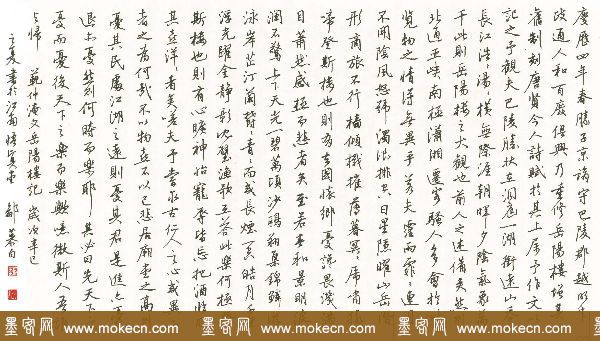 慶曆四年春滕子京謫守巴陵郡越明年
政通人和百廢俱興乃重修岳陽樓增其
舊制刻唐賢今人詩賦於其上屬予作文以
記之予觀夫巴陵勝狀在洞庭一湖銜遠山吞
長江浩浩湯湯橫無際涯朝暉夕陰氣象萬
千此則岳陽樓之大觀也前人之述備矣然則
北通巫峽南極瀟湘遷客騷人多會於此
覽物之情得無異乎若夫霪雨霏霏連月
不開陰風怒號濁浪排空日星隱曜山岳潛
形商旅不行檣傾楫摧薄暮冥冥虎嘯猿
啼登斯樓也則有去國懷鄉憂讒畏譏滿
目蕭然感極而悲者矣至若春和景明波
瀾不驚上下天光一碧萬頃沙鷗翔集錦鱗游
泳岸芷汀蘭郁郁青青而或長煙一空皓月千里
浮光躍金靜影沉璧漁歌互答此樂何極登
斯樓也則有心曠神怡寵辱皆忘把酒臨風
其喜洋洋者矣嗟夫予嘗求古仁人之心或異二
者之為何哉不以物喜不以己悲居廟堂之高則
憂其民處江湖之遠則憂其君是進亦憂
退亦憂然則何時而樂耶其必曰先天下之
憂而憂後天下之樂而樂歟噫微斯人吾誰
與歸 范仲淹文岳陽樓記 歲次辛巳
之夏書於江南 慕白
墨客网 www.mokecn.com 墨客网 www.mokecn.com 墨客网 www.mokecn.com